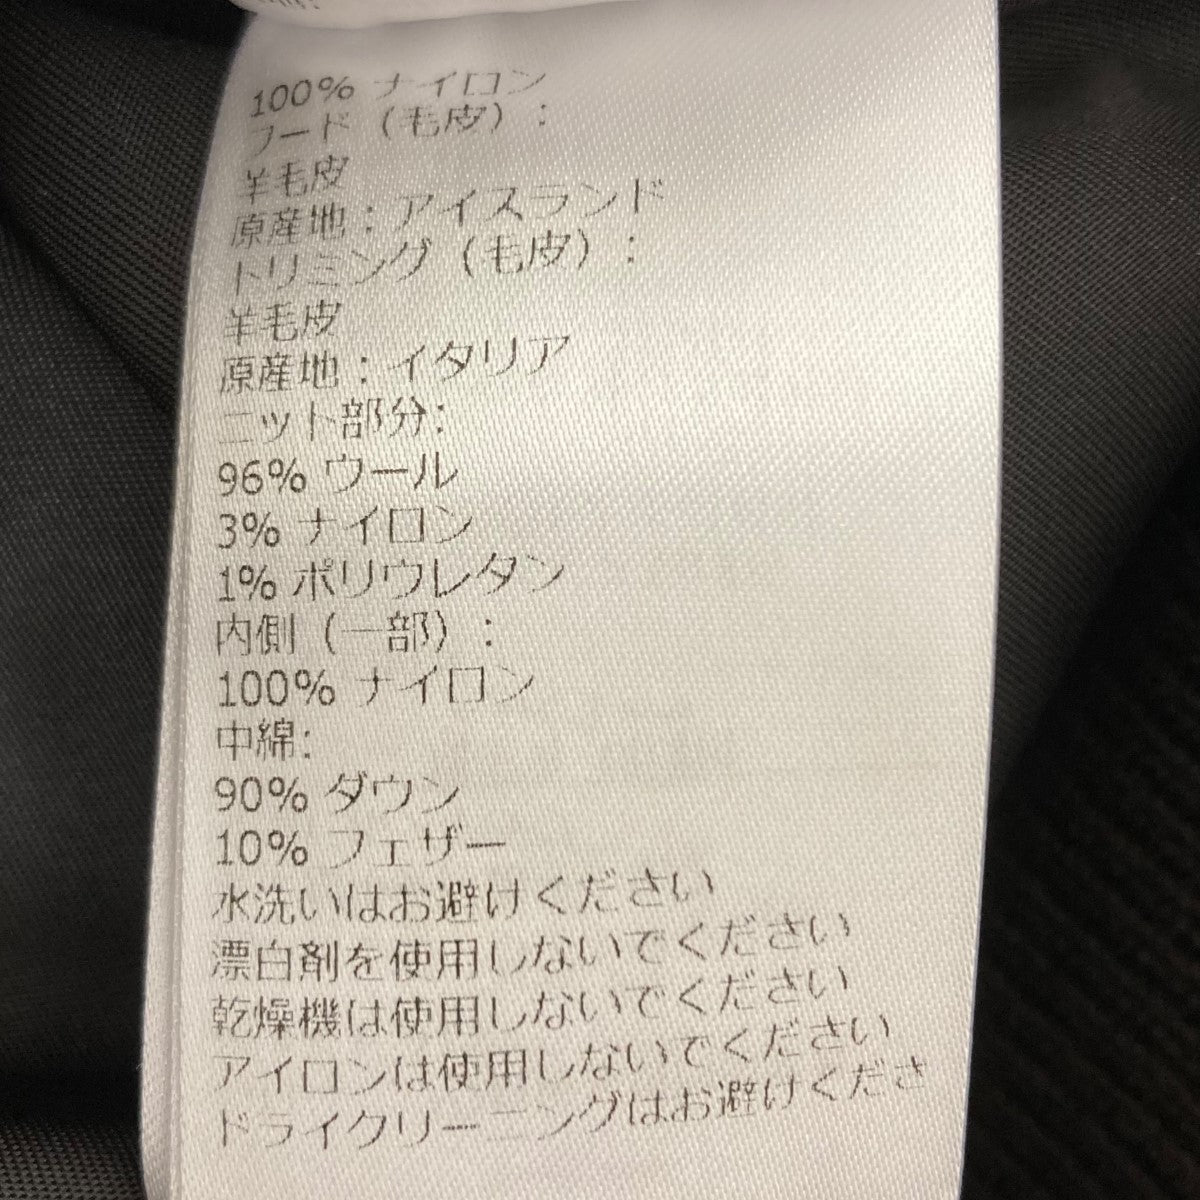 100% ナイロン
フード（毛皮）:
羊毛皮
原産地：アイスランド
トリミング（毛皮）:
羊毛皮
原産地：イタリア
ニット部分:
96% ウール
3% ナイロン
1% ポリウレタン
内側（一部）:
100% ナイロン
中綿:
90% ダウン
10% フェザー
水洗いはお避けください
漂白剤を使用しないでください
乾燥機は使用しないでください
アイロンは使用しないでください
ドライクリーニングはお避けくださ